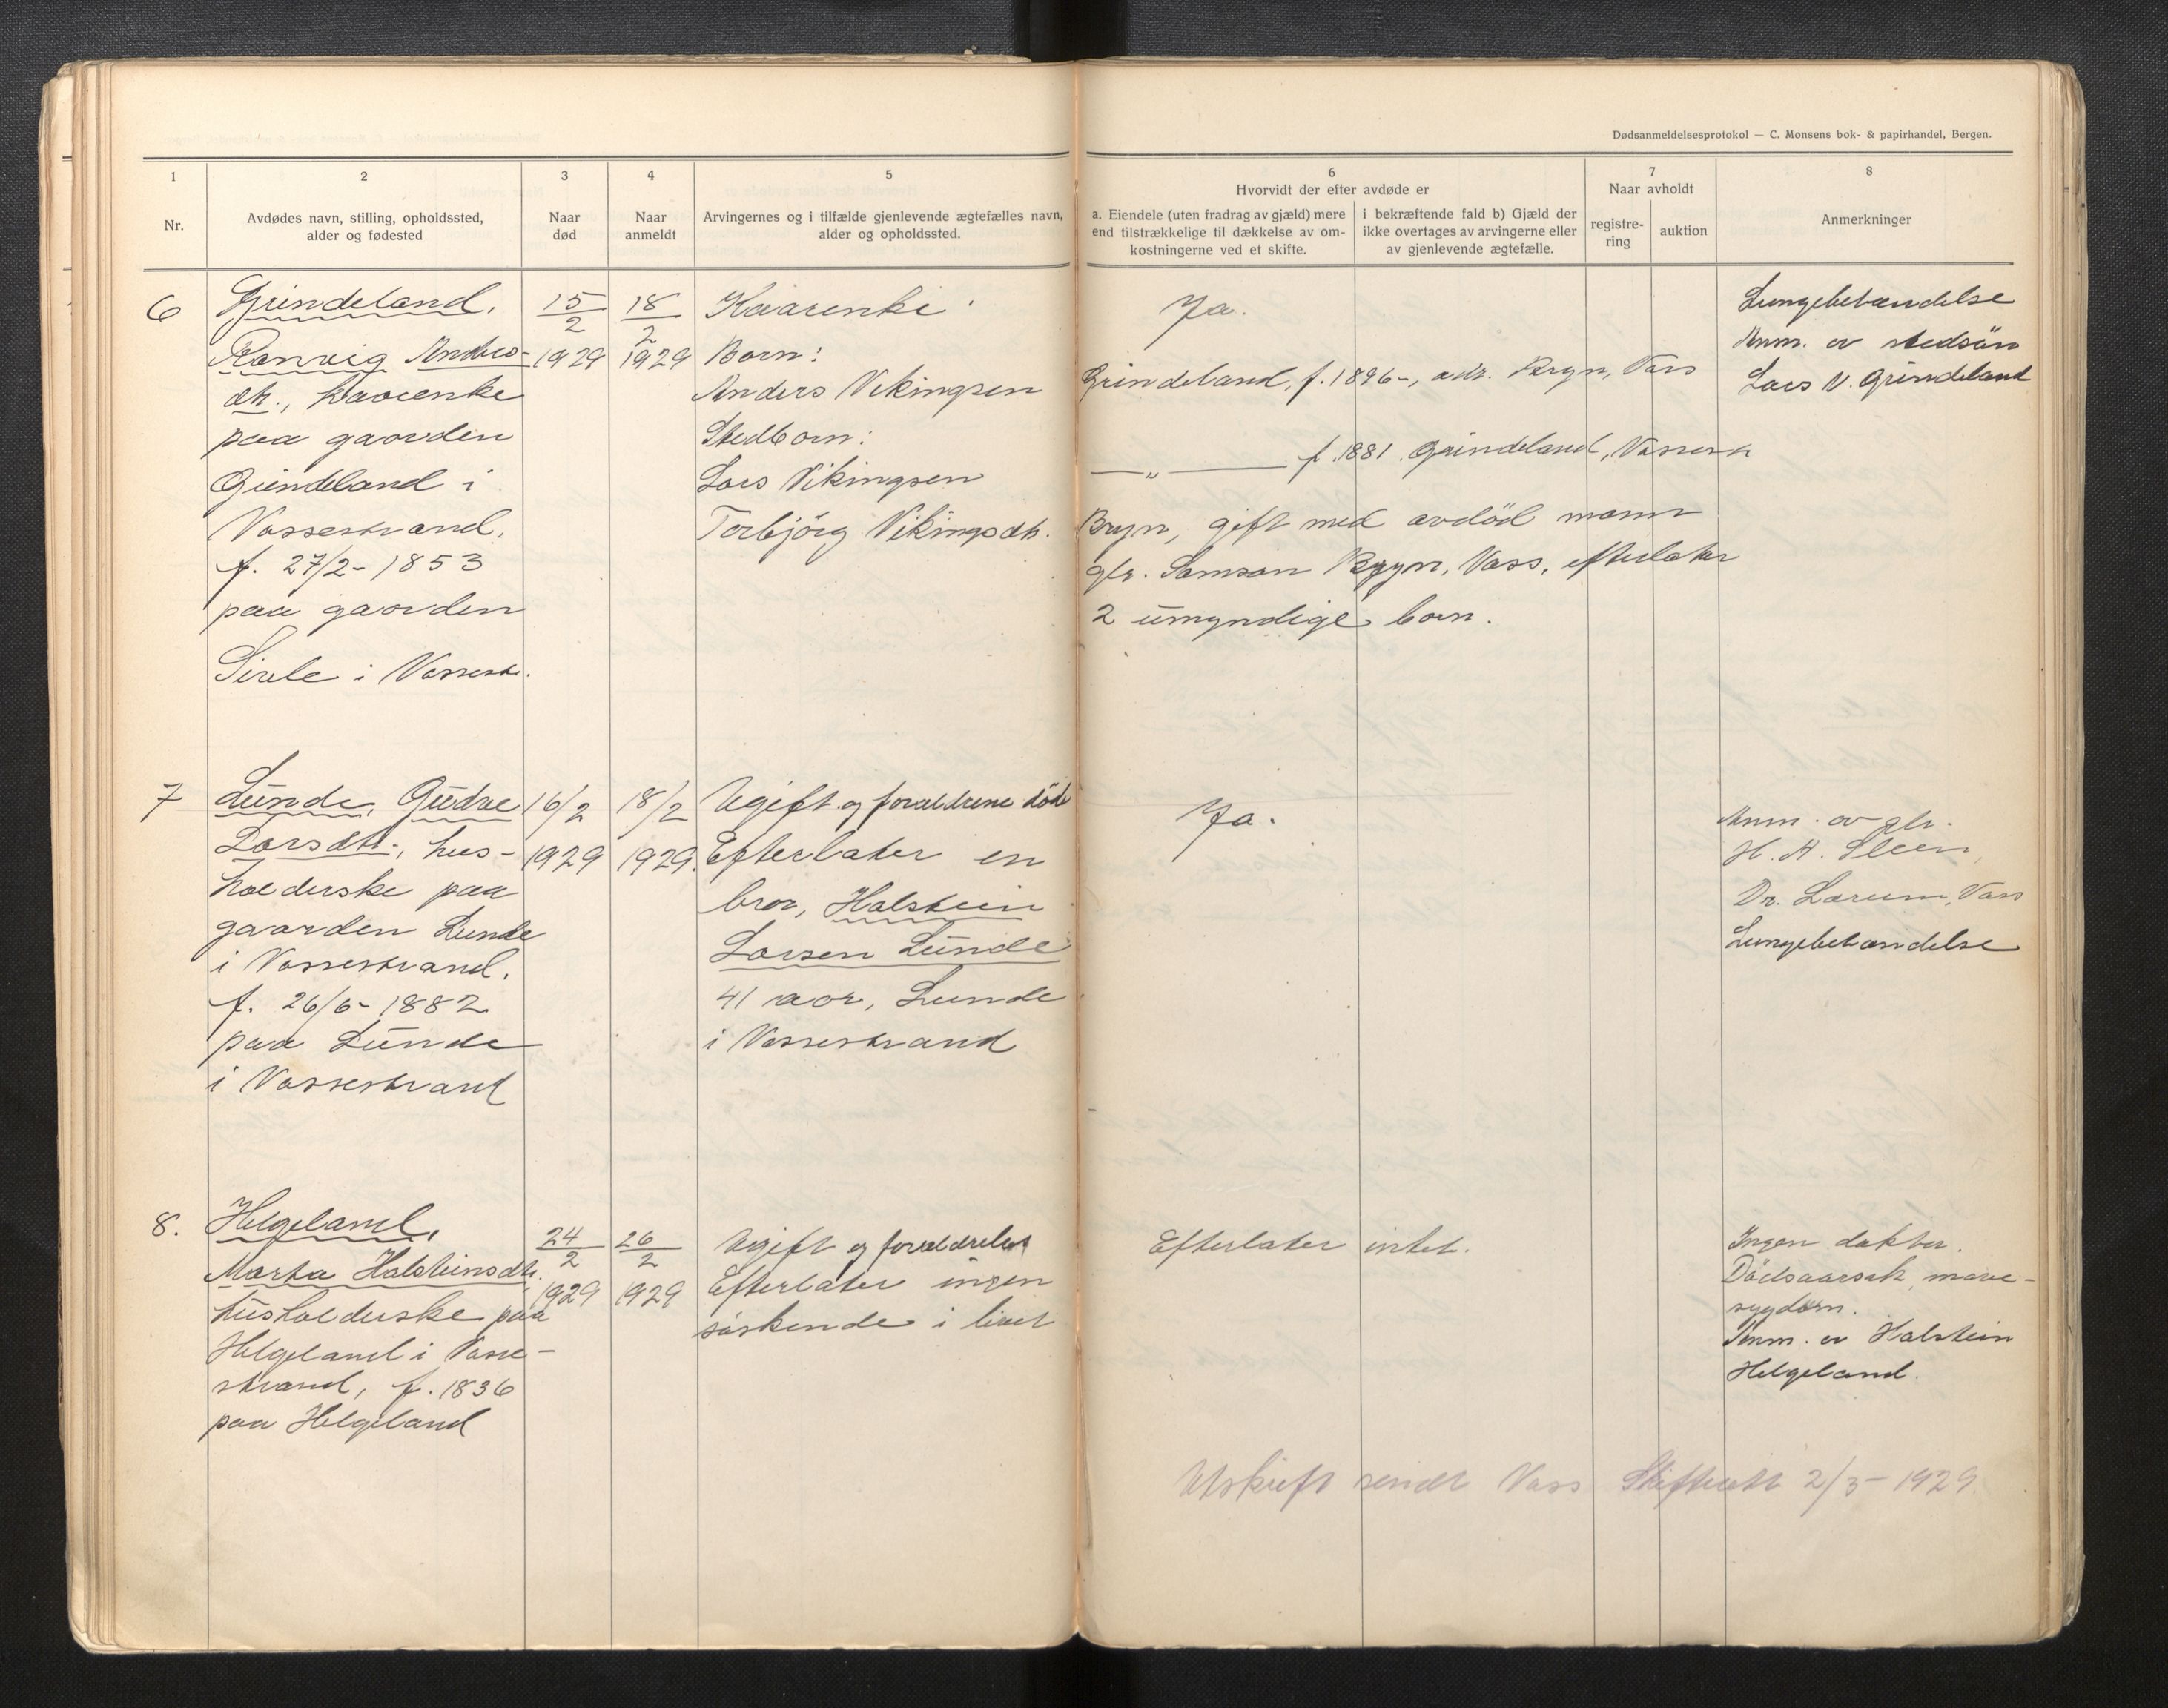 Dødsanmeldelsesprotokol — C. Monsens bok- & papirhandel, Bergen.
1 2 3 4 5 6 7 8
Nr.
Avdødes navn, stilling, opholdssted,
alder og fødested
Naar
død
Naar
anmeldt
Arvingernes og i tilfælde gjenlevende ægtefælles navn,
alder og opholdssted.
Hvorvidt der efter avdøde er
a. Eiendele (uten fradrag av gjæld) mere
end tilstrækkelige til dækkelse av om-
kostningerne ved et skifte.
i bekræftende fald b) Gjæld der
ikke overtages av arvingerne eller
av gjenlevende ægtefælle.
Naar avholdt
registre-
ring
auktion
Anmerkninger
6
Grindeland,
Ranvig Anders-
dtr., kaarenke
paa gaarden
Grindeland i
Vossestrand,
f. 27/2- 1853
paa gaarden
Sivle i Vossestr.
15/2
1929
18/2
1929
Kaarenke
Barn:
Anders Vikingsen
Stedbarn:
Lars Vikingsen
Torbjörg Vikingsdtr.
Ja.
Grindeland, f. 1896-, adr. Bryn, Voss
—„— f. 1881. Grindeland, Vossestr
Bryn, gift med avdöd mann
gbr. Samson Bryn, Voss, efterlater
2 umyndige barn.
Lungebetændelse
Anm. av stedsön
Lars V. Grindeland
7
Lunde, Gudve
Larsdtr., hus-
holderske paa
gaarden Lunde
i Vossestrand.
f. 26/6- 1882
paa Lunde
i Vossestrand
16/2
1929
18/2
1929.
Ugift og forældrene döde
Efterlater en
bror, Halstein
Larsen Lunde
41 aar, Lunde
i Vossestrand
Ja.
Anm. av gbr.
H. H. Sleen,
Dr. Lærum, Voss
Lungebetændelse
8.
Helgeland,
Marta Halsteinsdtr.
husholderske paa
Helgeland i Vosse-
strand, f. 1836
paa Helgeland
24/2
1929
26/2
1929
Ugift og forældreløs
Efterlater ingen
søskende i livet
Efterlater intet.
Ingen doktor.
Dödsaarsak, mave-
sygdom.
Anm. av Halstein
Helgeland.
Utskrift sendt Voss Skifterett 2/3- 1929.